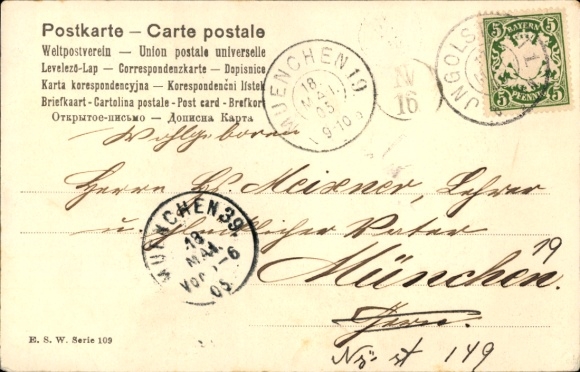 Postkarte – Carte postale
Weltpostverein – Union postale universelle
Levelező-Lap – Correspondenzkarte – Dopisnice
Karta korespondencyjna – Korespondenční lístek
Briefkaart - Cartolina postale - Post card - Brefkort
Открытое-письмо – Дописна Карта
MUENCHEN 19
18
MAI.
05
9-10
IV
16
INGOLS
BAYERN
5 5
5 5
PFENNIG
Wohlgeboren
Herrn Meixner, Lehrer
u.
MUENCHEN 39
18
MAI
6
05
19
München.
149
E. S. W. Serie 109